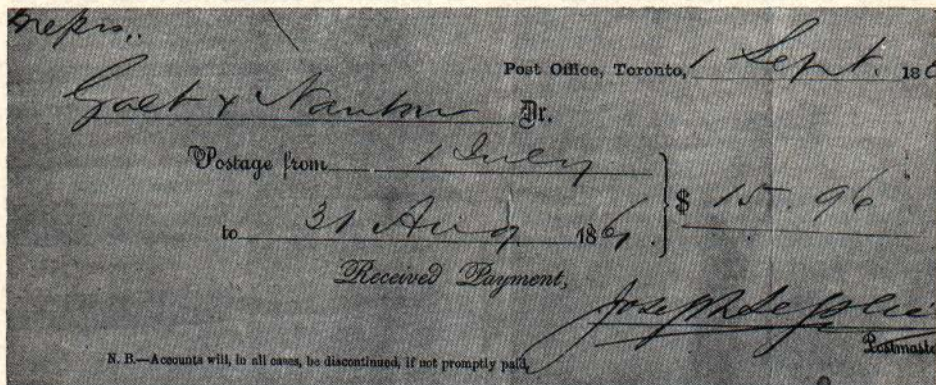 Messrs.
Post Office, Toronto, 1 Sept. 186
Galt & Nanton Dr.
Postage from 1 July
to 31 Aug 1861 } $ 15.96
Received Payment,
Joseph Leslie
Postmaste
N. B.—Accounts will, in all cases, be discontinued, if not promptly paid.